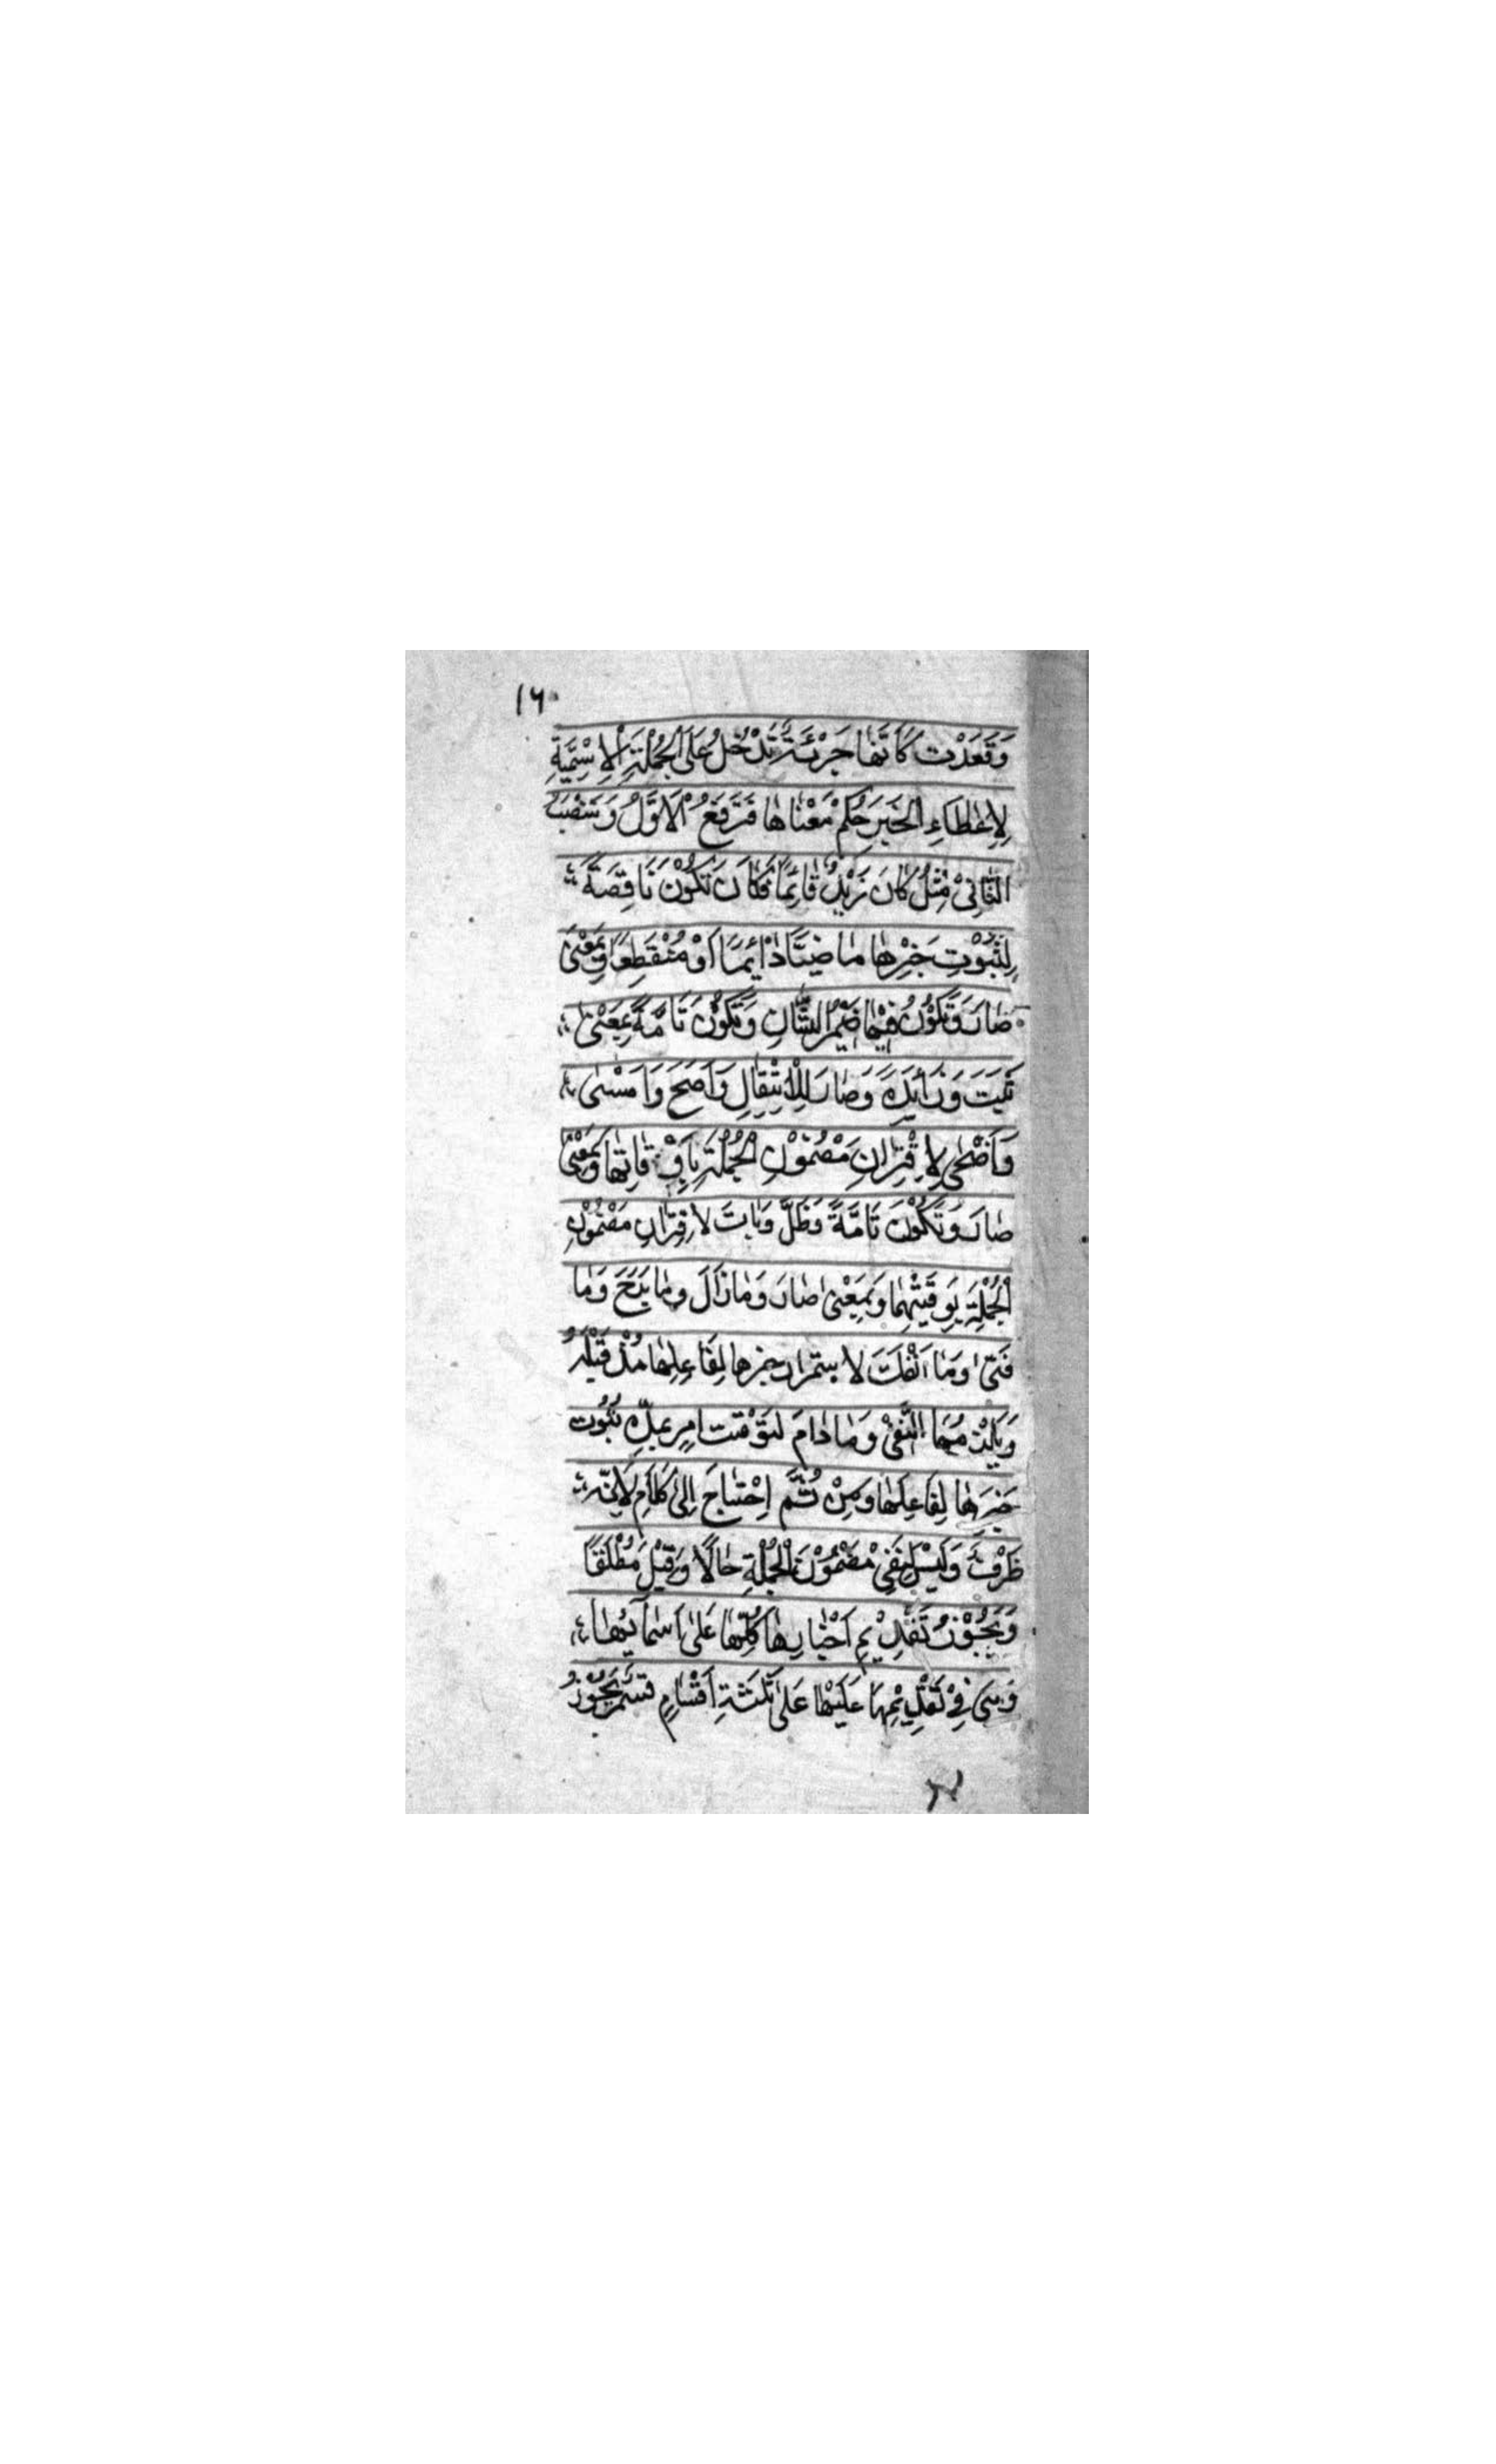 ١٦٠
وَقَعَدْت كَاَنَّهَا حَرْبَةٌ تَدْخُلُ عَلَى الْجُمْلَةِ الْاِسْمِيَّةِ
لِاِعْطَاءِ الْخَبَرِ حُكْمَ مَعْنَاهَا فَتَرْفَعُ الْاَوَّلُ وَتَنْصِبُ
الثَّانِىْ مِثْلُ كَانَ زَيْدٌ قَائِمًا فَكَانَ تَكُوْنَ نَاقِصَةً
لِثُبُوْتِ خَبْرِهَا مَاضِيًّا دَائِمًا اَوْ مُنْقَطِعًا وَبِمَعْنَى
صَارَ وَتَكُوْنُ فِيْهَا ضَمِيْرُ الشَّانِ وَتَكُوْنَ تَامَّةً بِمَعْنىٰ
ثَبَتَ وَزَائِدَةً وَصَارَ لِلْاِنْتِقَالِ وَاَصْبَحَ وَاَمْسٰى
وَاَضْحٰى لِاِقْتِرَانِ مَضْمُوْنِ الْجُمْلَةِ بِاَوْقَاتِهَا وَبِمَعْنىٰ
صَارَ وَتَكُوْنَ تَامَّةً وَظَلَّ وَبَاتَ لاِقْتِرَانِ مَضْمُوْنِ
الْجُمْلَةِ بِوَقْتَيْهِمَا وَبِمَعْنىٰ صَارَ وَمَازَالَ وَمَا بَرَحَ وَمَا
فَتَىْ وَمَا اَنْفَكَّ لاستمرار خبرها لِفَاعِلِهَا مُذْ قَبْلَهُ
وَيَلْزَمُهَا النَّفْىُ وَمَا دَامَ لتَوْقت امرٍ بمدّةِ ثبُوت
خَبَرِهَا لِفَاعِلِهَا وَمِنْ ثُمَّ اِحْتَاجَ اِلىٰ كَلَامٍ لِاَنَّهٗ
ظَرْفٌ وَلَيْسَ لِنَفِىْ مَضْمُوْنِ الْجُمْلَةِ حَالًا وَقِيْلَ مُطْلَقًا
وَيَجُوْزُ تَقْدِيْمِ اَخْبَارِهَا كُلِّهَا عَلىٰ اَسْمَائِهَا
وَهِىَ فِىْ تَقْدِيْمِهَا عَلَيْهَا عَلىٰ ثَلٰثَةِ اَقْسَامٍ قسمٌ يَجُوْزُ